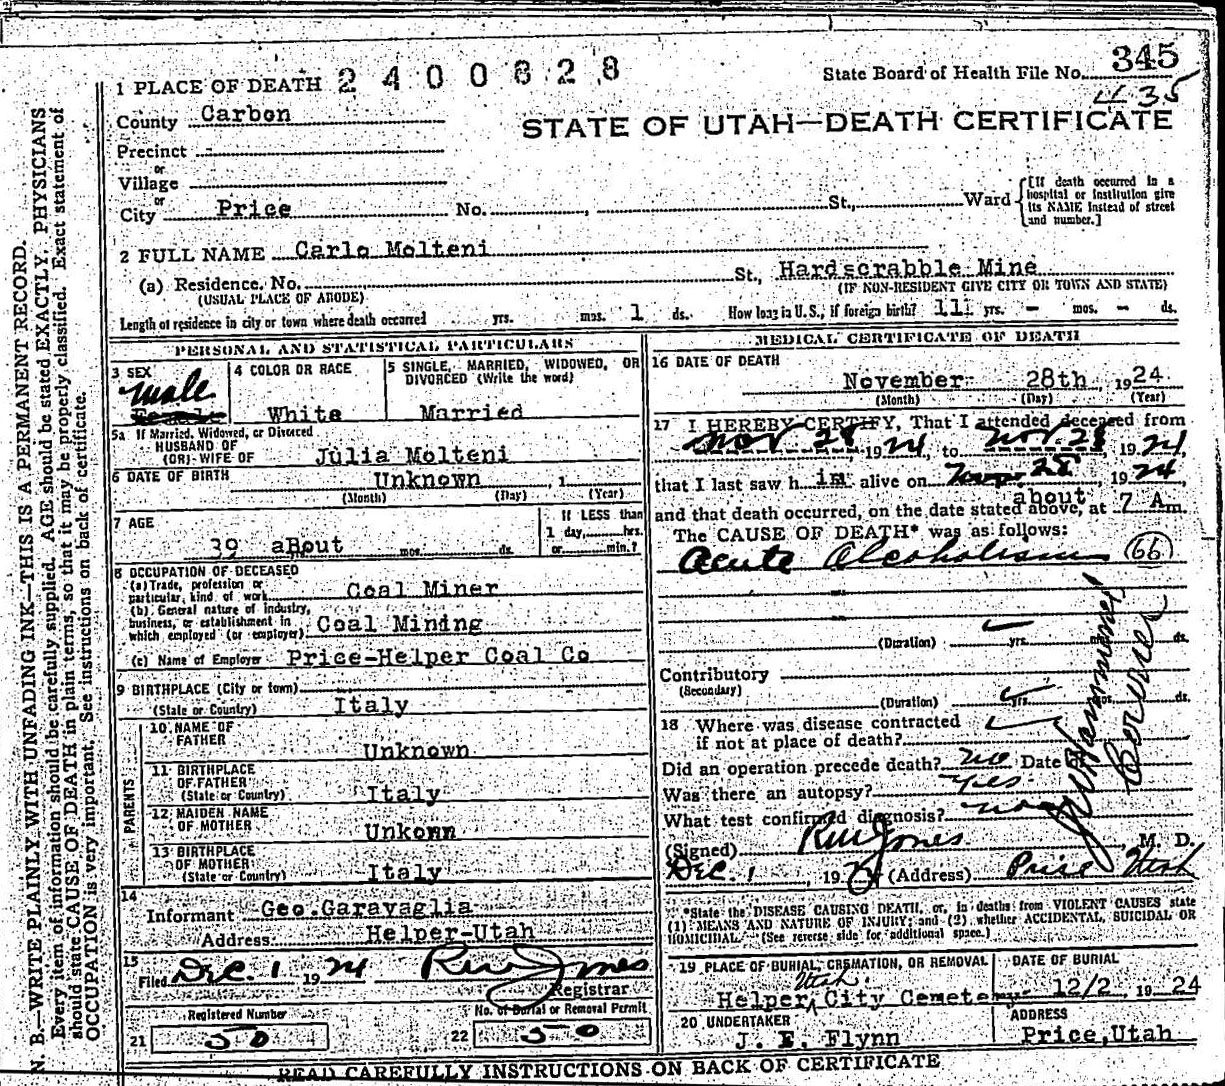 345
State Board of Health File No.
435
1 PLACE OF DEATH 2400628
County Carbon
STATE OF UTAH—DEATH CERTIFICATE
Precinct
or
Village
or
City Price No. , St., Ward {[If death occurred in a hospital or institution give its NAME instead of street and number.]
2 FULL NAME Carlo Molteni
(a) Residence. No. St., Hardscrabble Mine
(USUAL PLACE OF ABODE) (IF NON-RESIDENT GIVE CITY OR TOWN AND STATE)
Length of residence in city or town where death occurred yrs. mos. 1 ds. How long in U.S., if foreign birth? 11 yrs. - mos. - ds.
PERSONAL AND STATISTICAL PARTICULARS
3 SEX
male
Female
4 COLOR OR RACE
White
5 SINGLE, MARRIED, WIDOWED, OR
DIVORCED (Write the word)
Married
5a If Married, Widowed, or Divorced
HUSBAND OF
(OR) WIFE OF Julia Molteni
6 DATE OF BIRTH Unknown , 1
(Month) (Day) (Year)
7 AGE
39 aBout mos. ds.
If LESS than
1 day, hrs.
or min.?
8 OCCUPATION OF DECEASED
(a) Trade, profession or
particular, kind of work Coal Miner
(b) General nature of industry,
business, or establishment in
which employed (or employer) Coal Mining
(c) Name of Employer Price-Helper Coal Co
9 BIRTHPLACE (City or town)
(State or Country) Italy
PARENTS
10 NAME OF
FATHER Unknown
11 BIRTHPLACE
OF FATHER
(State or Country) Italy
12 MAIDEN NAME
OF MOTHER Unkown
13 BIRTHPLACE
OF MOTHER
(State or Country) Italy
14
Informant Geo.Garavaglia
Address Helper-Utah
15
Filed Dec. 1 1924 Jones
Registrar
Registered Number No. of Burial or Removal Permit
21 50 22 50
MEDICAL CERTIFICATE OF DEATH
16 DATE OF DEATH
November 28th, 1924
(Month) (Day) (Year)
17 I HEREBY CERTIFY, That I attended deceased from
Nov 28, 1924, to Nov. 28 1924,
that I last saw h im alive on Nov. 28, 1924
about
and that death occurred, on the date stated above, at 7 A m.
The CAUSE OF DEATH* was as follows:
Acute Alcoholism (66)
(Duration) yrs. mos. ds.
Contributory
(Secondary)
(Duration) yrs. mos. ds.
18 Where was disease contracted
if not at place of death?
Did an operation precede death? no Date of
Was there an autopsy? yes
What test confirmed diagnosis?
Coroner
(Signed) Jones, M. D.
Dec. 1, 1924 (Address) Price Utah
*State the DISEASE CAUSING DEATH, or, in deaths from VIOLENT CAUSES state
(1) MEANS AND NATURE OF INJURY; and (2) whether ACCIDENTAL, SUICIDAL OR
HOMICIDAL. (See reverse side for additional space.)
19 PLACE OF BURIAL, CREMATION, OR REMOVAL
Utah.
Helper City Cemetery
DATE OF BURIAL
12/2, 1924
20 UNDERTAKER
J. E. Flynn
ADDRESS
Price,Utah
READ CAREFULLY INSTRUCTIONS ON BACK OF CERTIFICATE
N. B.—WRITE PLAINLY WITH UNFADING INK—THIS IS A PERMANENT RECORD.
Every item of information should be carefully supplied. AGE should be stated EXACTLY. PHYSICIANS
should state CAUSE OF DEATH in plain terms, so that it may be properly classified. Exact statement of
OCCUPATION is very important. See instructions on back of certificate.